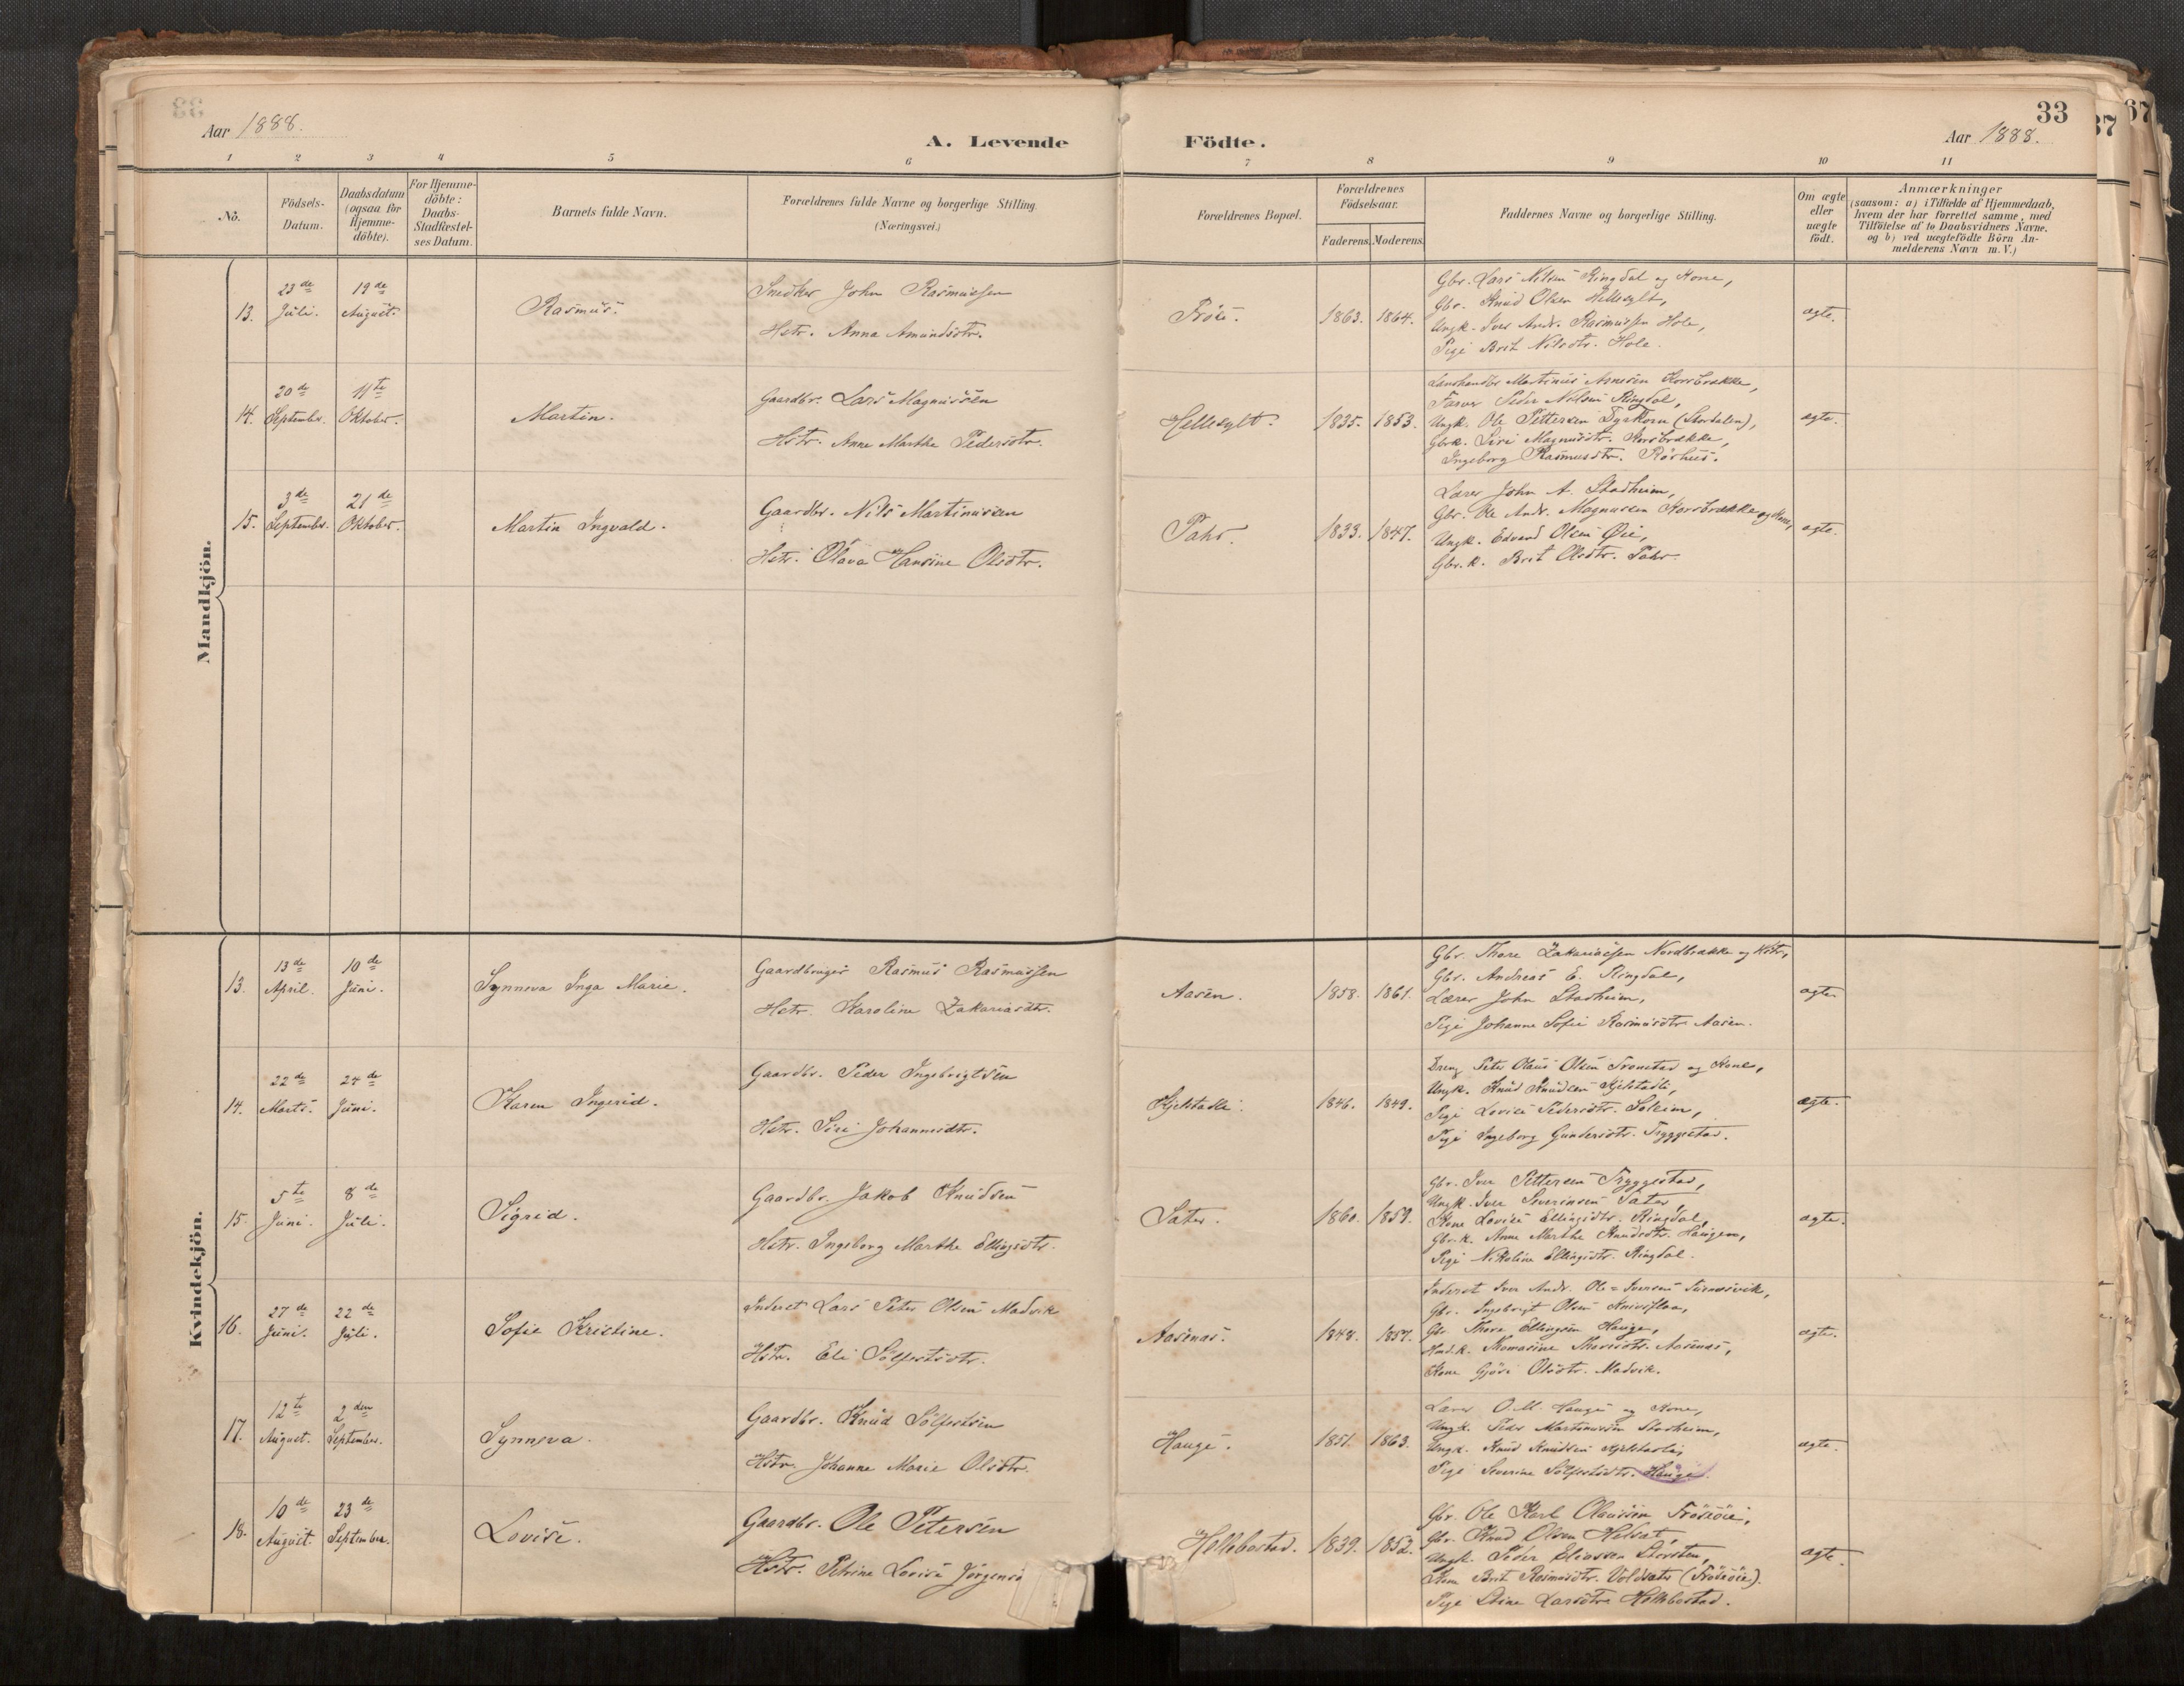 33
Aar 1888.
A. Levende Födte.
Aar 1888.
33
37
67
1 2 3 4 5 6 7 8 9 10 11
No.
Födsels-Datum.
Daabsdatum (ogsaa for Hjemme-döbte).
For Hjemme-döbte: Daabs-Stadfæstel-ses Datum.
Barnets fulde Navn.
Forældrenes fulde Navne og borgerlige Stilling. (Næringsvei.)
Forældrenes Bopæl.
Forældrenes Födselsaar.
Faderens. Moderens.
Faddernes Navne og borgerlige Stilling.
Om ægte eller uægte födt.
Anmærkninger
(saasom: a) i Tilfælde af Hjemmedaab,
hvem der har forrettet samme, med
Tilföielse af to Daabsvidners Navne,
og b) ved uægtefödte Börn An-
melderens Navn m. V.)
Mandkjön.
13. 23de Juli. 19de August. Rasmus.
Snedker John Rasmussen
Hstr. Anna Amundsdtr.
1863. 1864.
Gbr. Lars Nilsen Ringdal og Kone,
Gbr. Knud Olsen Hellesylt,
Ungk. Iver Andr. Rasmussen Hole,
Pige Brit Nilsdtr. Hole.
ægte.
14. 20de September. 11te Oktober. Martin.
Gaardbr. Lars Magnussen
Hstr. Anne Marthe Pedersdtr.
Hellesylt. 1835. 1853.
Landhandler Martinus Arnesen Korsbrække,
Farver Peder Nilsen Ringdal,
Ungk. Ole Pettersen Dyrkorn (Stordalen),
Gbrk. Siri Magnusdtr. Korsbrække,
Ingeborg Rasmusdtr. Rørhus.
ægte.
15. 3de September. 21de Oktober. Martin Ingvald.
Gaardbr. Nils Martinussen
Hstr. Olava Hansine Olsdtr.
Tahr. 1833. 1847.
Lærer John A. Stadheim,
Gbr. Ole Andr. Magnussen Korsbrække og Kone,
Ungk. Edvard Olsen Øie,
Gbr. k. Brit Olsdtr. Tahr.
ægte.
Kvindekjön.
13. 13de April. 10de Juni. Synneva Inga Marie.
Gaardbruger Rasmus Rasmussen
Hstr. Karoline Zakariasdtr.
Aasen. 1858. 1861.
Gbr. Thore Zakariassen Nordbrække og Hstr.,
Gbr. Andreas E. Ringdal,
Lærer John Stadheim,
Pige Johanne Sofie Rasmusdtr. Aasen.
ægte.
14. 22de Marts. 24de Juni. Karen Ingerid.
Gaardbr. Peder Ingebrigtsen
Hstr. Siri Johannesdtr.
Kjelstadli. 1846. 1849.
Dreng Peter Olaus Olsen Tronstad og Kone,
Ungk. Knud Knudsen Kjelstadli,
Pige Lovise Pedersdtr. Soleim,
Pige Ingeborg Gundersdtr. Tryggestad.
ægte.
15. 5te Juni. 8de Juli. Sigrid.
Gaardbr. Jakob Knudsen
Hstr. Ingeborg Marthe Ellingsdtr.
Sæter. 1860. 1859.
Gbr. Iver Pettersen Tryggestad,
Ungk. Iver Severinsen Sæter,
Kone Lovise Ellingsdtr. Ringdal,
Gbr. k. Anne Marthe Knudsdtr. Haugen,
Pige Nikoline Ellingsdtr. Ringdal.
ægte.
16. 27de Juni. 22de Juli. Sofie Kristine.
Inderst Lars Peter Olsen Madvik
Hstr. Eli Sølfestsdtr.
Aasenæs. 1848. 1857.
Inderst Iver Andr. Ole-Iversen
Gbr. Ingebrigt Olsen Knivsflaa,
Gbr. Thore Ellingsen Hauge,
Hmd. k. Thomasine Thoresdtr. Aasenæs,
Kone Gjøri Olsdtr. Madvik.
ægte.
17. 12te August. 2den September. Synneva.
Gaardbr. Knud Sølfestsen
Hstr. Johanne Marie Olsdtr.
Hauge. 1851. 1863.
Lærer O. M. Hauge og Kone,
Ungk. Peder Martinussen Stadheim,
Ungk. Knud Knudsen Kjelstadli,
Pige Severine Sølfestsdtr. Hauge.
ægte.
18. 10de August. 23de September. Lovise.
Gaardbr. Ole Petersen
Hstr. Petrine Lovise Jørgens
Hellebostad. 1839. 1852.
Gbr. Ole Karl Olaussen Frøsøie,
Gbr. Knud Olsen Helsæt,
Ungk. Peder Eliassen Storsten,
Kone Brit Rasmusdtr. Voldsæter (Frøsøie).
Pige Stine Larsdtr. Hellebostad.
ægte.